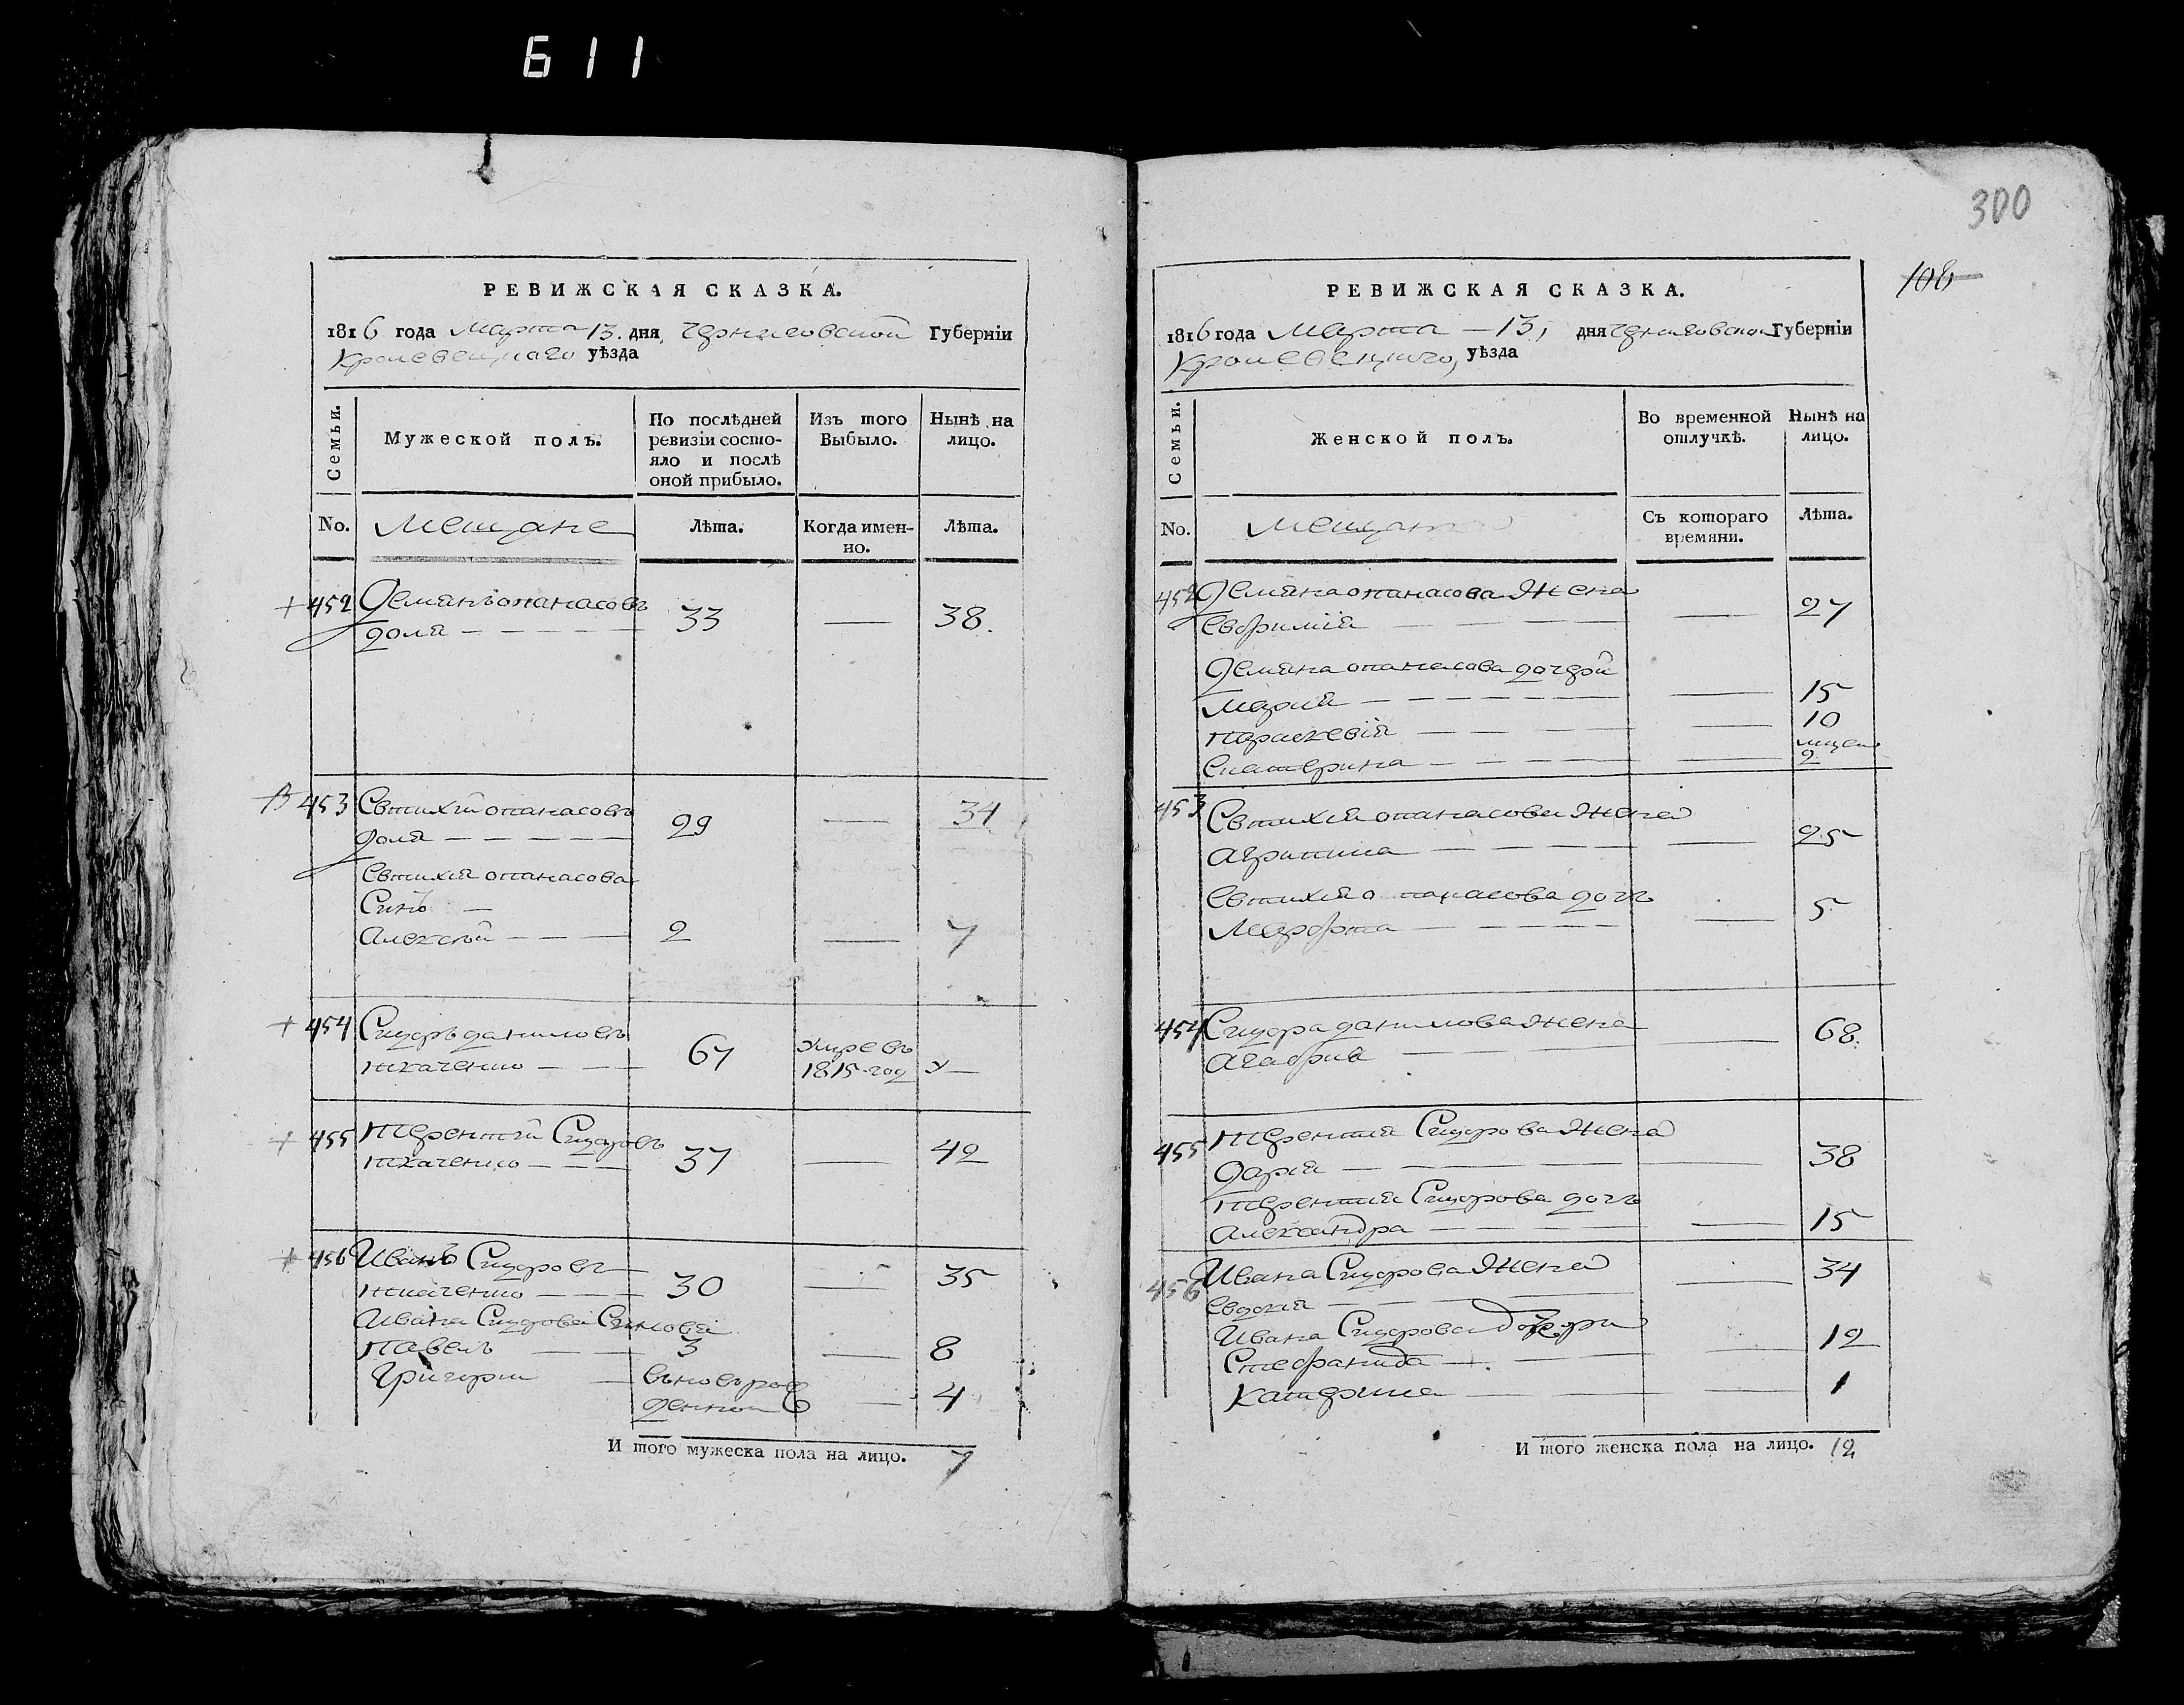 611
300
106
РЕВИЖСКАЯ СКАЗКА.
1816 года Марта 13. дня, Черниговской Губерніи
Кролевецкаго уѣзда
Семьи.
Мужеской полъ.
По послѣдней ревизіи состо-
яло и послѣ оной прибыло.
Изъ того Выбыло.
Нынѣ на лицо.
No. Мещане Лѣта. Когда имен-
но. Лѣта.
452 Демянъ опанасовъ
доля 33 — 38.
453 Евтихій опанасовъ
доля 29 — 34
Евтихія опанасова
Синъ —
Алексѣй 2 — 7
454 Сидоръ даниловъ
ткаченко 67 умре въ
1815 год у —
455 терентій Сидоровъ
ткаченко 37 — 42
456 Иванъ Сидоровъ
ткаченко 30 — 35
Ивана Сидорова Синовя
павелъ 3 — 8
Григории вьновърож
денной — 4
И того мужеска пола на лицо. 7
РЕВИЖСКАЯ СКАЗКА.
1816 года Марта — 13, дня Черниговской Губерніи
Кролевецкаго, уѣзда
Семьи.
Женской полъ.
Во временной отлучкѣ.
Нынѣ на лицо.
No. Съ котораго времяни. Лѣта.
452 Демяна опанасова Жена
Евфимія — 27
Демяна опанасова дочери
Мария — 15
параскевія — 10
Екатерина — 2
453 Евтихія опанасова Жена
Агрипина — 25
Евтихія опанасова дочъ
Марфта — 5
454 Сидора данилова жена
Агафия — 68.
455 терентия Сидорова Жена
дария — 38
терентия Сидорова дочъ
Александра — 15
456 Ивана Сидорова Жена — 34
Евдокия
Ивана Сидорова Дочери
Стефанида — 12
Катерина — 1
И того женска пола на лицо. 12